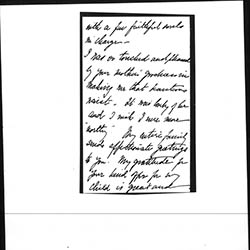 with a few faithful souls
in charge —
I was so touched and pleased
by your mother's goodness in
making me that
visit. It was lovely of her
and I wish I were more
worthy. My entire family
sends affectionate greetings
to you. My gratitude for
your kind offer for my
child is great and